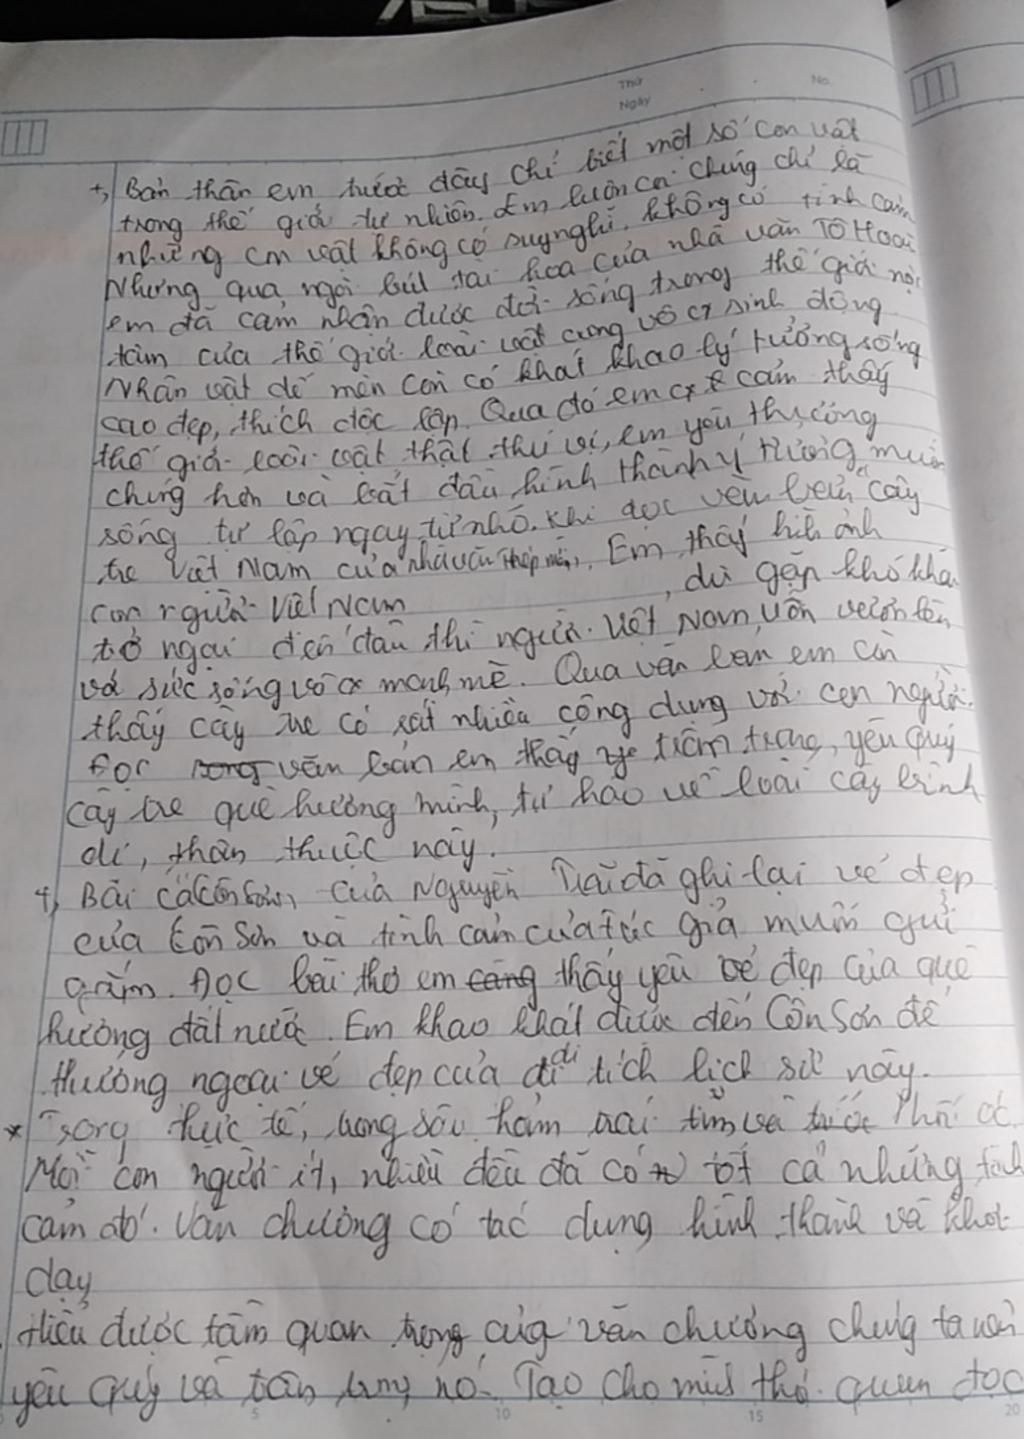 ASUS
Thứ
Ngày
No.
+, Bản thân em trước đây chỉ biết một số con vật
trong thế giới tự nhiên. Em luôn coi chúng chỉ là
những con vật không có suy nghĩ, không có tình cảm
Nhưng qua ngòi bút tài hoa của nhà văn Tô Hoài
em đã cảm nhận được đời sống trong thế giới nội
tâm của thế giới loài vật cũng vô cг sinh động
Nhân vật dế mèn còn có khát khao lý tưởng sống
cao đẹp, thích độc lập. Qua đó em cảm thấy
thế giới loài vật thật thú vị, em yêu thương
chúng hơn và bắt đầu hình thành ý tưởng muốn
sống tự lập ngay từ nhỏ. Khi đọc văn bản cây
tre Việt Nam của nhà văn Thép mới, Em thấy hình ảnh
con người Việt Nam , dù gặp khó khăn
trở ngại đến đâu thì người Việt Nam vẫn vươn lên
với sức sống vô cг mạnh mẽ. Qua văn bản em còn
thấy cây tre có rất nhiều công dụng với con người.
Đọc văn bản em thấy trân trọng, yêu quý
cây tre quê hương mình, tự hào về loài cây bình
dị, thân thuộc này.
+, Bài ca Côn Sơn, của Nguyễn Trãi đã ghi lại vẻ đẹp
của Côn Sơn và tình cảm của tác giả muốn gửi
gắm. Đọc bài thơ em càng thấy yêu vẻ đẹp của quê
hương đất nước. Em khao khát được đến Côn Sơn để
thưởng ngoại vẻ đẹp của di tích lịch sử này.
* Trong thực tế, trong sâu thẳm trái tim và
Mỗi con người ít, nhiều đều đã có tất cả những tình
cảm đó. Văn chương có tác dụng hình thành và khơi
dạy
Hiểu được tầm quan trọng của văn chương chúng ta
yêu quý và trân trọng nó. Tạo cho mình thói quen đọc
5
10
15
20